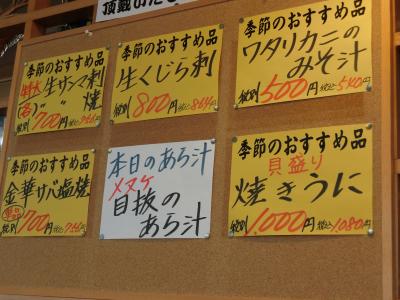 頂戴いたし
季節のおすすめ品
特大 生サンマ刺
〃 〃 焼
税別 700円 税込756円
季節のおすすめ品
生くじら刺
税別 800円 税込864円
季節のおすすめ品
ワタリカニの
みそ汁
税別 500円 税込540円
季節のおすすめ品
金華サバ塩焼
税別 700円 税込756円
本日のあら汁
メヌケ
目抜の
あら汁
季節のおすすめ品
貝盛り
焼きうに
税別 1,000円 税込1,080円